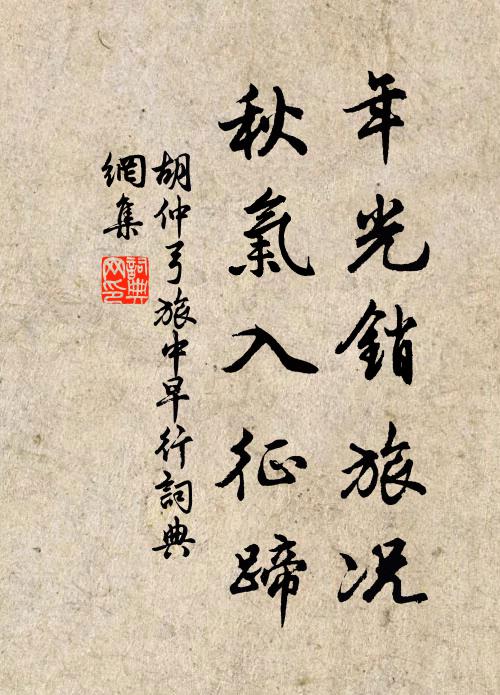 年光銷旅况
秋氣入征蹄
胡仲弓旅中早行詞典
網集
詞典
网印